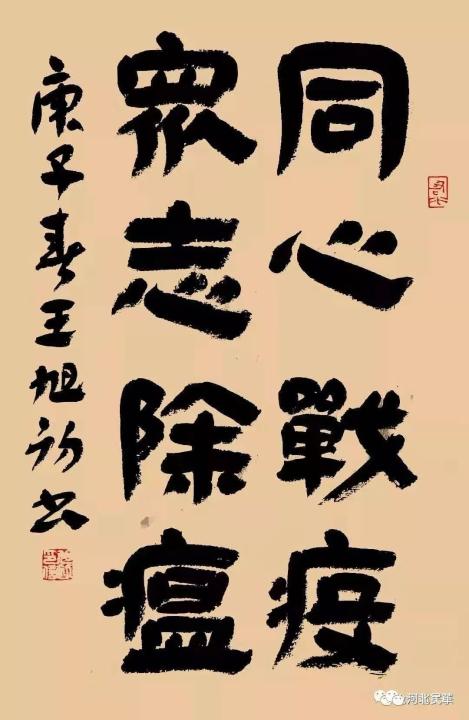 同心戰疫
眾志除瘟
庚子春王旭初書
河北民革